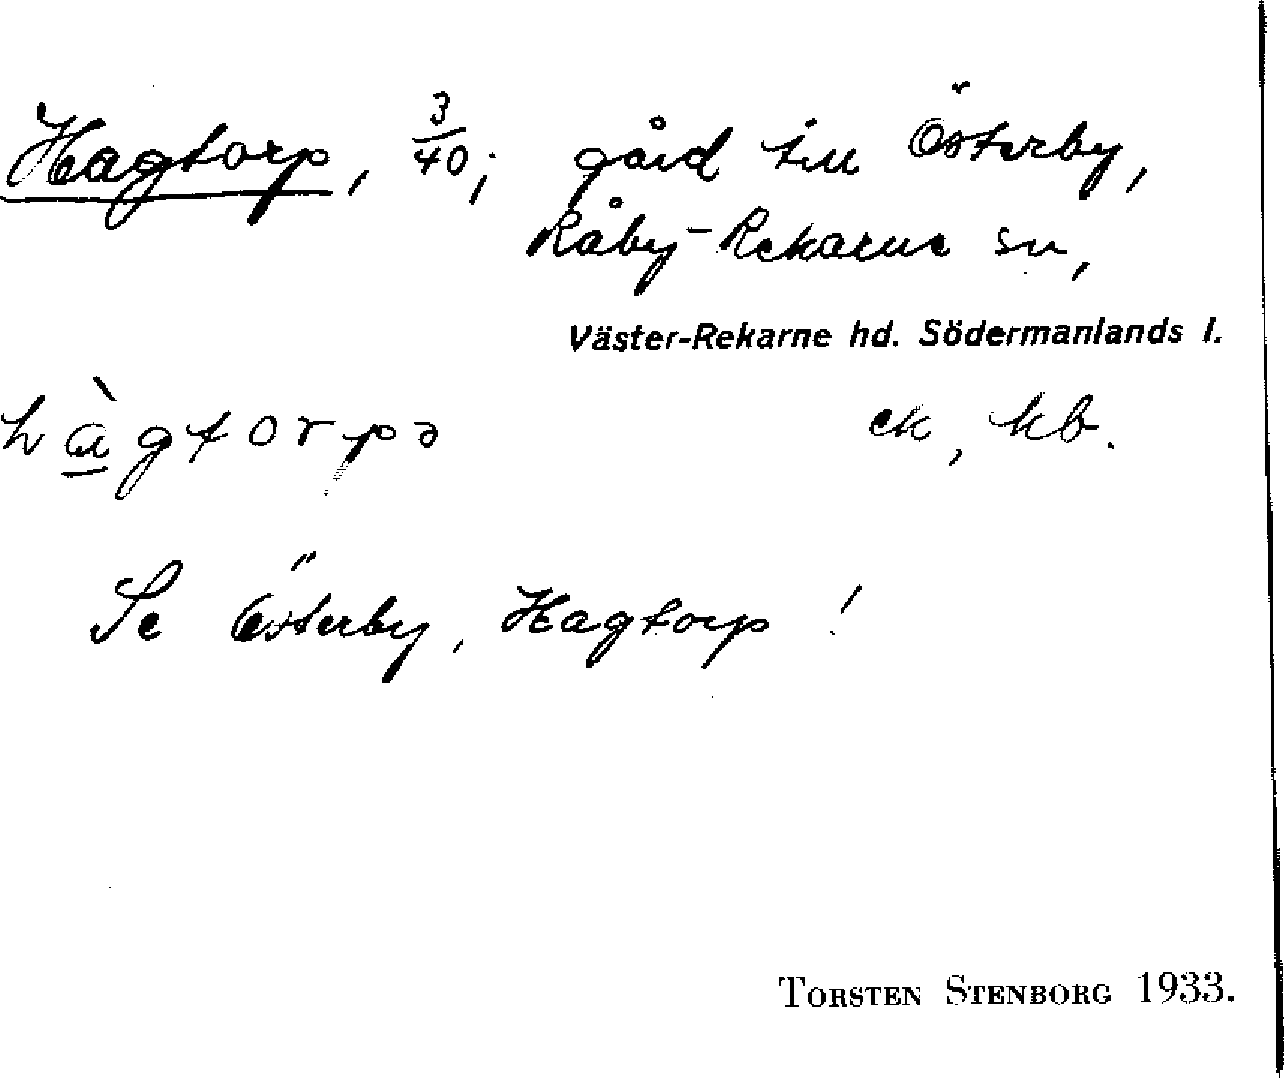 Hagtorp, 3/40; gård till Österby,
Råby-Rekarne sn,
Väster-Rekarne hd. Södermanlands l.
hàgtorpə ek, kb.
Se Österby, Hagtorp!
TORSTEN STENBORG 1933.